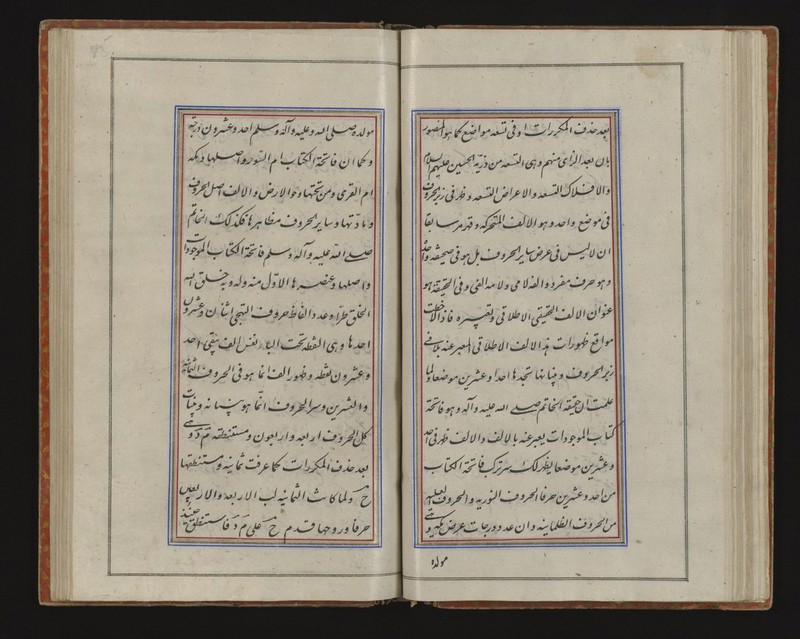 بعد حذف المكررات او فى تسعه مواضع كما هو المنصور
بان بعد الزاى منهم وهى التسعه من ذريه الحسين عليهم السلام
والافلاك التسعه والاعراض التسعه وظهر فى زبر الحروف
فى موضع واحد وهو الالف المتحركه وقد مر سابقا
ان لا ليس فى عرض ساير الحروف بل هو فى صحيفه واحد
وهو حرف مفرد والف لامى ولا مد الفى وفى الحقيقة هو
عنوان الالف الحقيقى الاطلاقى وتفسيره فاذا لاحظت
مواقع ظهورات هذا الالف الاطلاقى المعبر عنه بلا فى
زبر الحروف وبيناتها تجدها احدا وعشرين موضعا ولما
علمت ان حقيقة الخاتم صلى الله عليه وآله وهو فاتحة
كتاب الموجودات يعبر عنه بالالف والالف ظهر فى احد
وعشرين موضعا يظهر لك سر تركب فاتحة الكتاب
من احد وعشرين حرفا الحروف النوريه والحروف العليه
من الحروف الظلمانيه وان عدد درجات عرض مكه وهى
مولده
مولده صلى الله وعليه وآله وسلم احد وعشرون درجة
وكما ان فاتحة الكتاب ام السور واصلها ومكه
ام القرى ومن تحتها دحو الارض والالف اصل الحروف
ومادتها وساير الحروف مظاهرها فكذلك الخاتم
صلى الله عليه وآله وسلم فاتحة الكتاب الموجودات
واصلها وعنصرها الاول منه وله وبه خلق الله
الخلق طرا وعدد الفاظ حروف التهجى اثنان وعشرون
احدها وهى النقطه تحت الباء نفس الف بقى احد
وعشرون نقطه وظهور الف انما هو فى الحروف الثمانية
والعشرين وسر الحروف انما هو بيناته وبينات
كل الحروف اربعه واربعون ومستنطقه م د وهى
بعد حذف المكررات كما عرفت ثمانيه ومستنطقها
ح ولما كانت الثمانيه لب الاربعه والاربعين
حرفا وروحها قدم ح على م د فاستنطق حينئذ